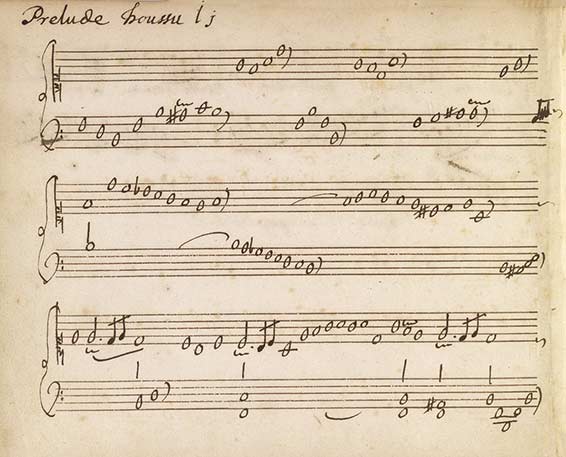 Prelude houssu